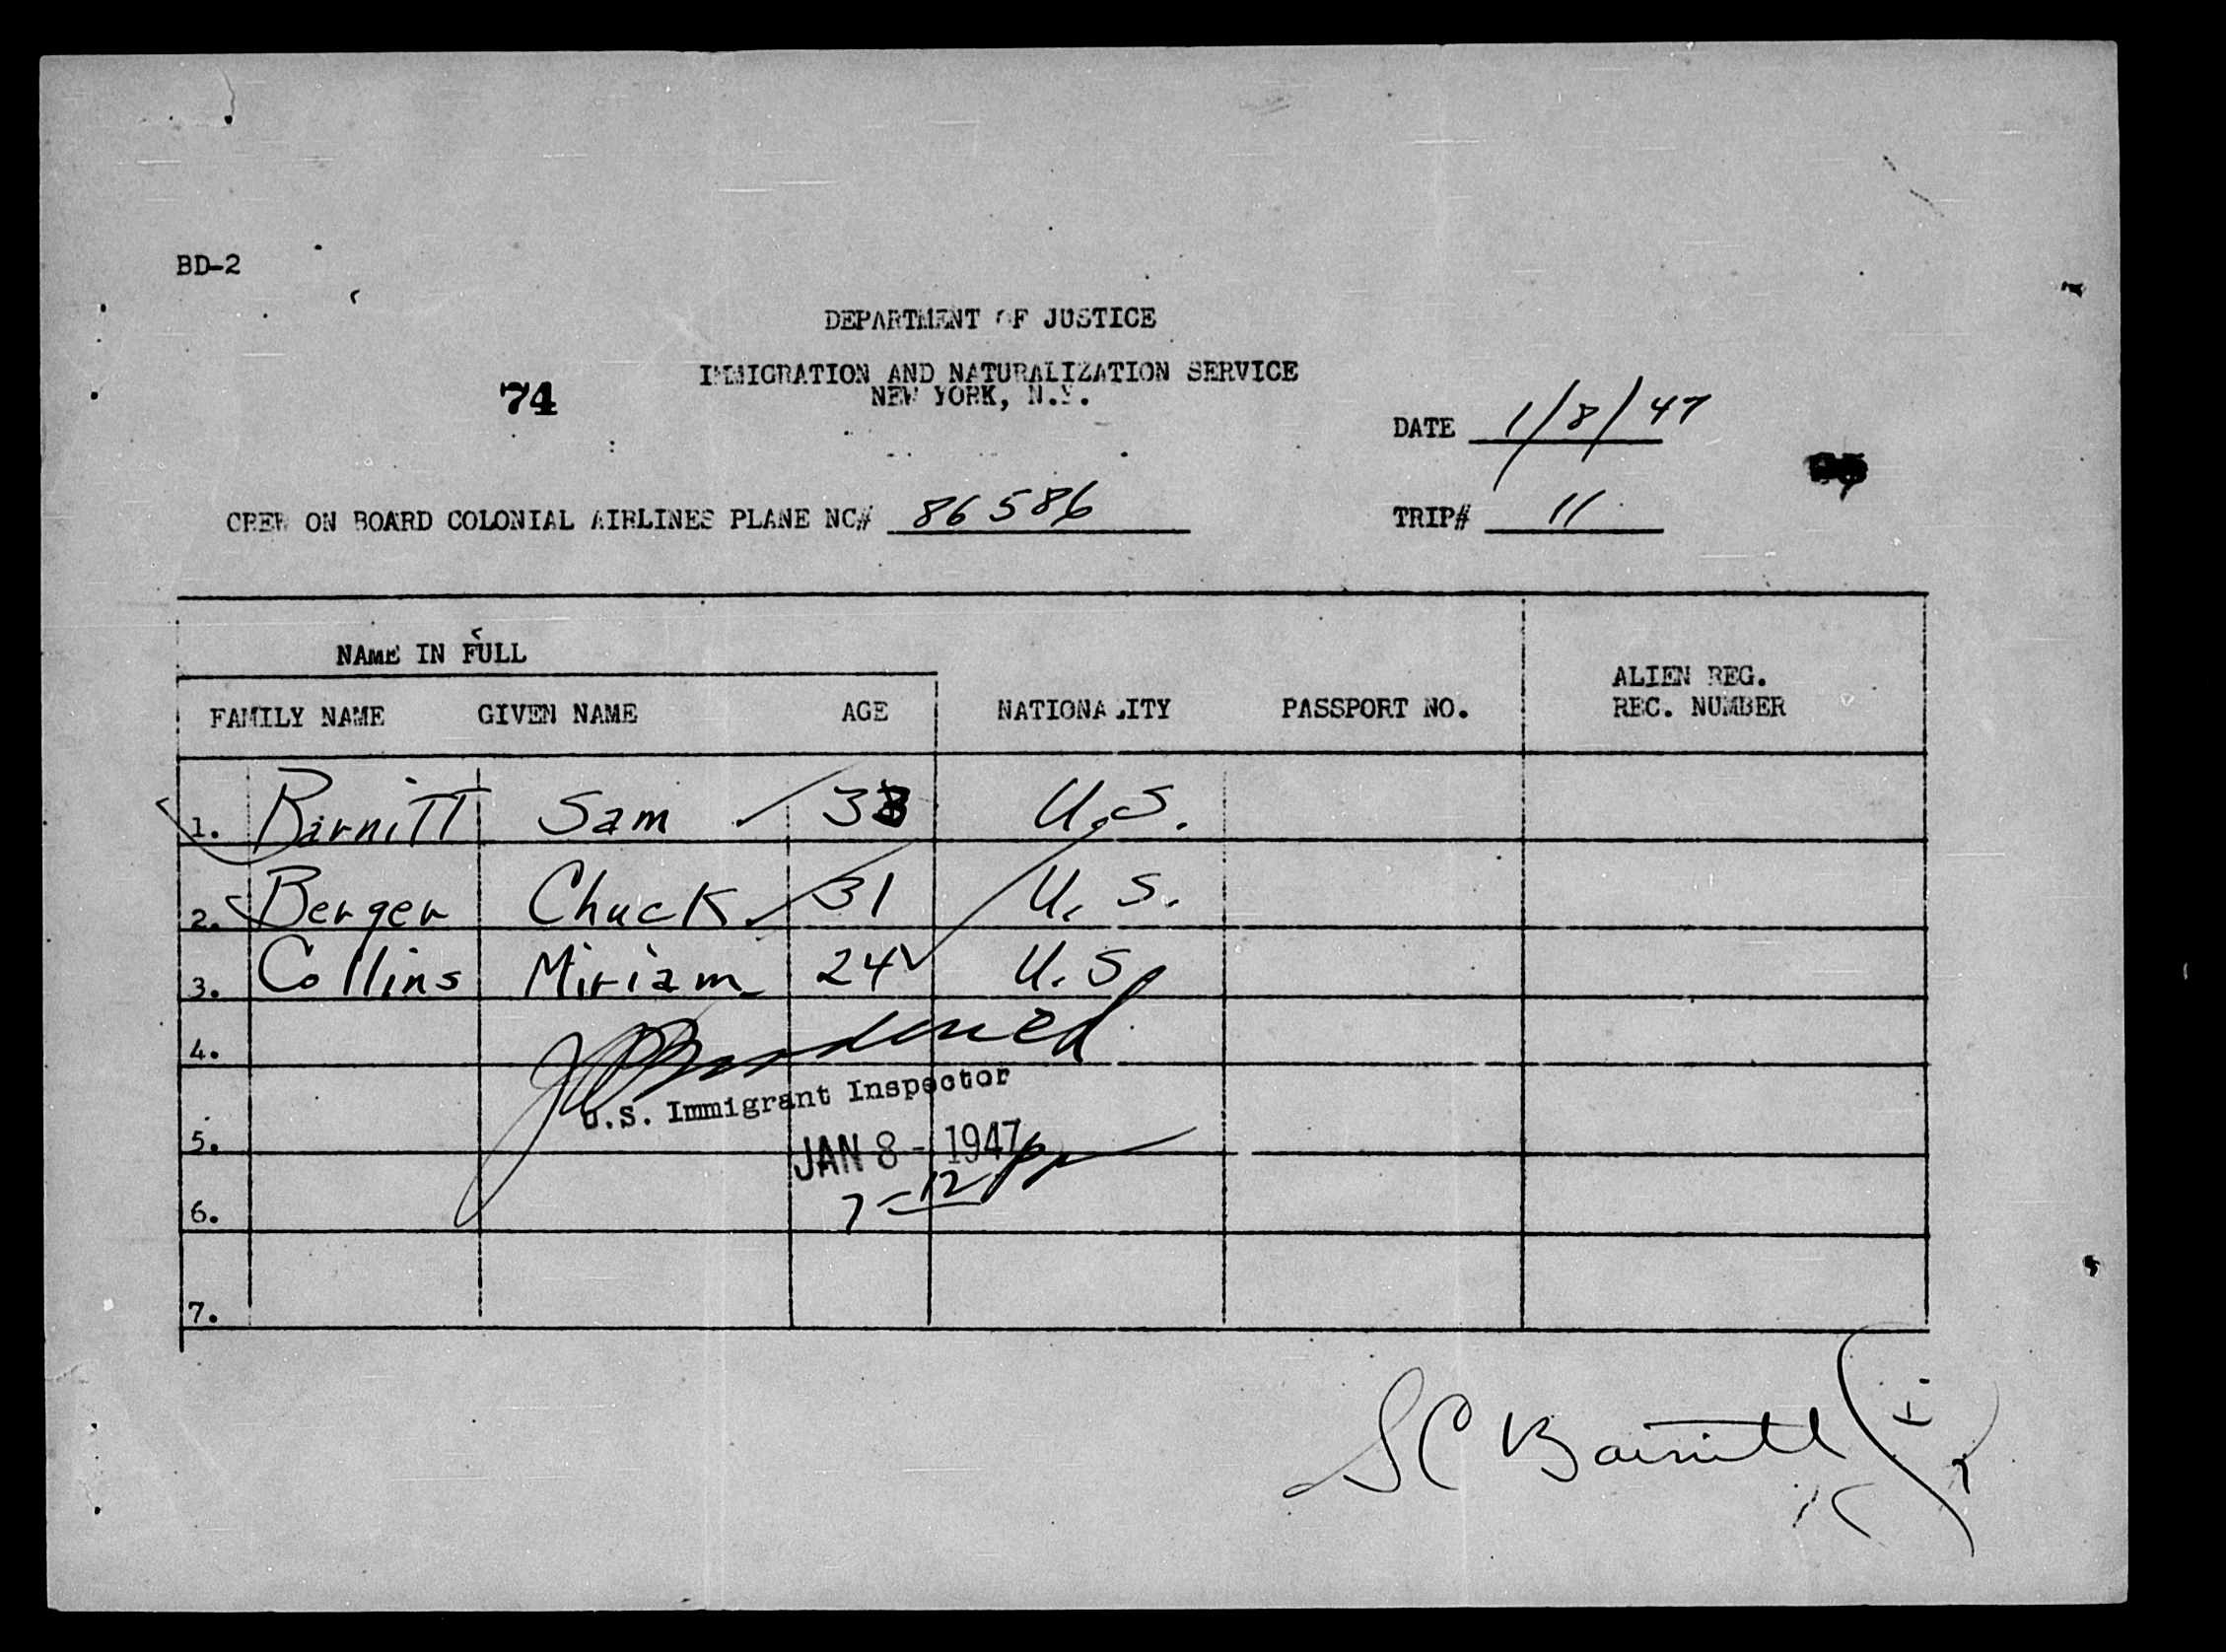 BD-2
DEPARTMENT OF JUSTICE
IMMIGRATION AND NATURALIZATION SERVICE
NEW YORK, N.Y.
74
DATE 1/8/47
CREW ON BOARD COLONIAL AIRLINES PLANE NC# 86586
TRIP# 11
NAME IN FULL
FAMILY NAME GIVEN NAME AGE NATIONALITY PASSPORT NO. ALIEN REG. REC. NUMBER
1. Barnitt Sam 38 U.S.
2. Berger Chuck 31 U.S.
3. Collins Miriam 24 U.S.
4.
U.S. Immigrant Inspector
5.
JAN 8 - 1947
6.
7-12 PM
7.
S C Barnitt